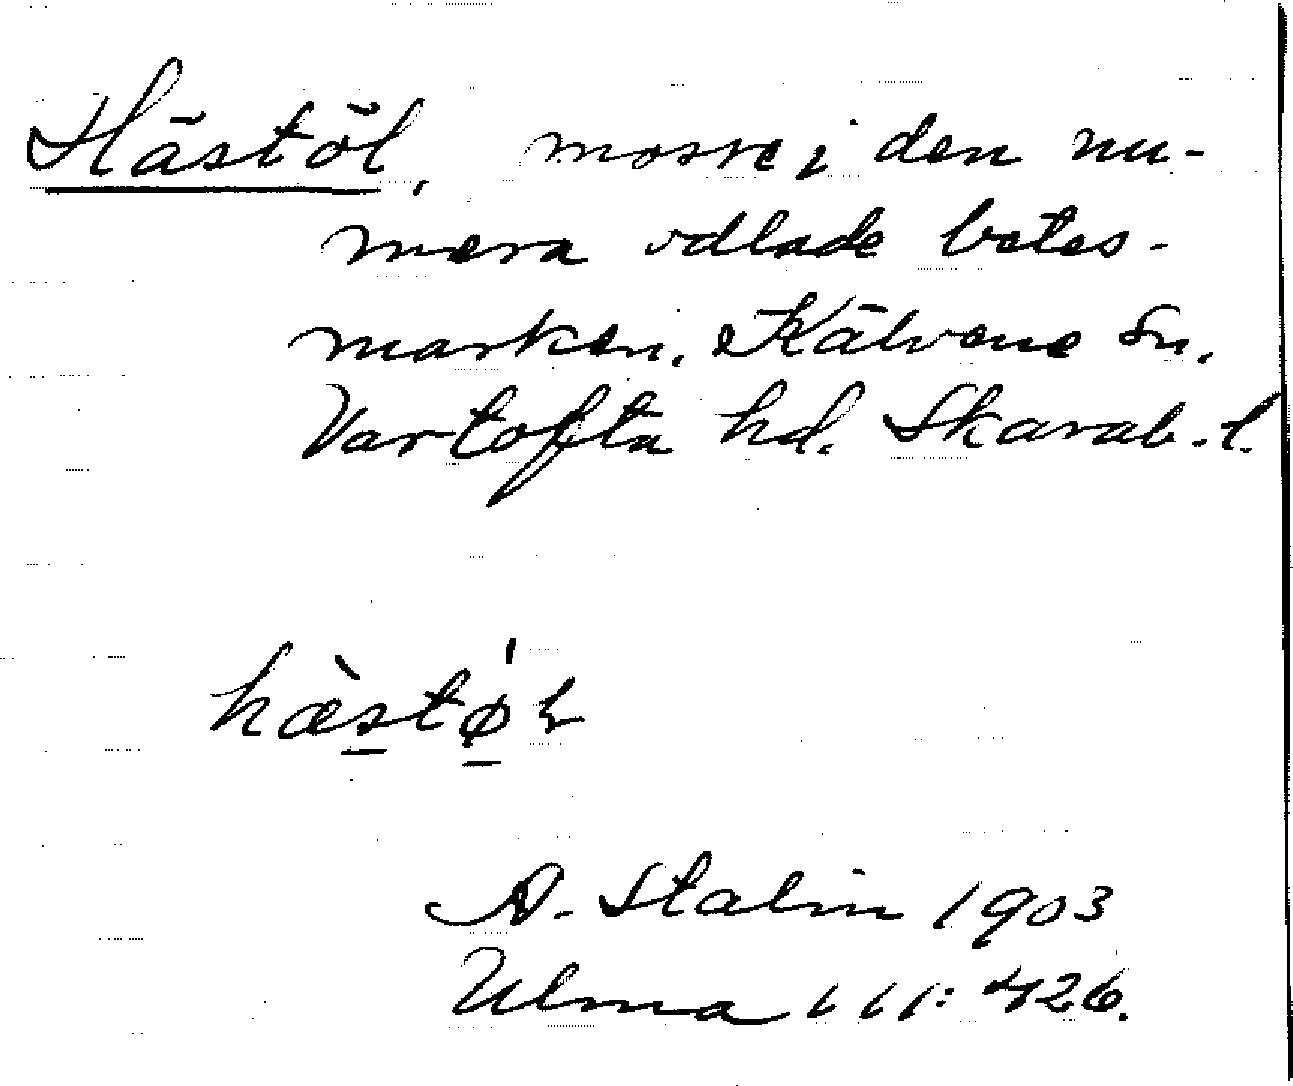 Hästöl, mosse i den nu-
mera odlade betes-
marken. Kälvene sn.
Vartofta hd. Skarab. l.
hæ̀stø̀l
A. Stalin 1903
Ulma 111: 426.